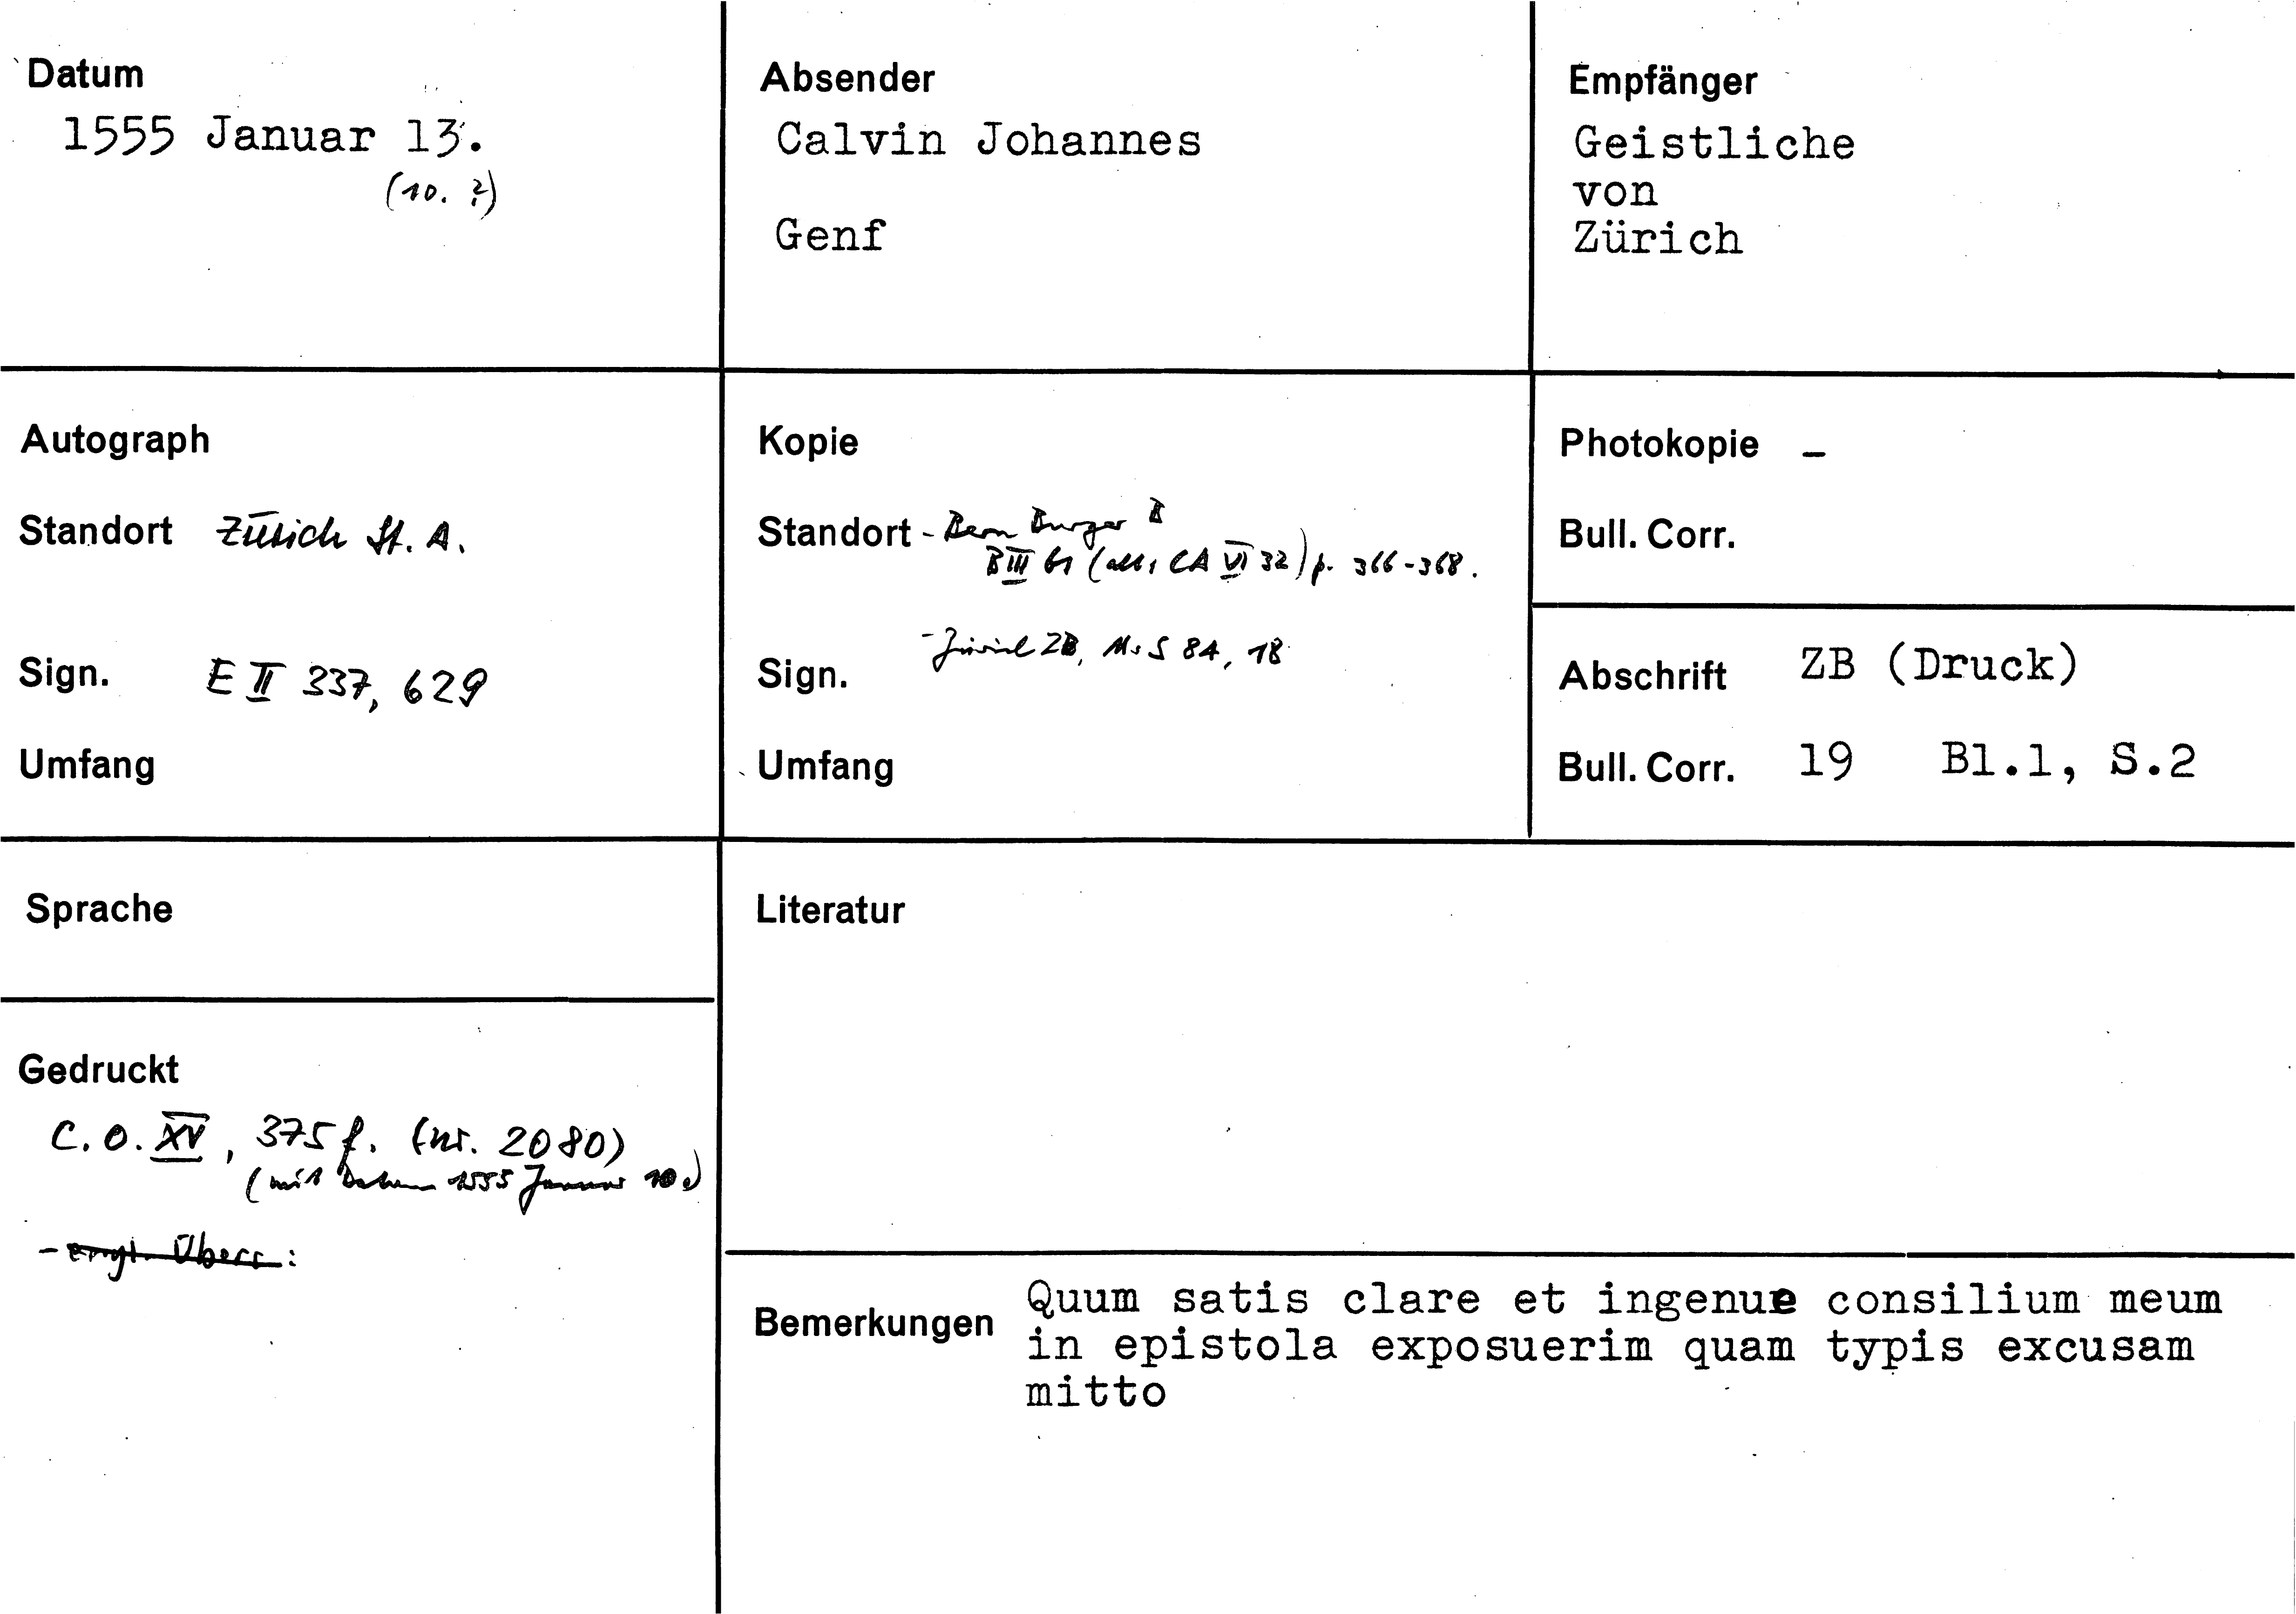 Datum
1555 Januar 13.
(10. ?)
Absender
Calvin Johannes
Genf
Empfänger
Geistliche
von
Zürich
Autograph
Standort Zürich St. A.
Sign. E II 337, 629
Umfang
Kopie
Standort - Bern Burger B
B III 61 (alt: CA VI 32) p. 366-368.
- Zürich ZB, Ms S 84, 18
Sign.
Umfang
Photokopie –
Bull. Corr.
Abschrift ZB (Druck)
Bull. Corr. 19 Bl.1, S.2
Sprache
Gedruckt
C. O. XV, 375 f. (nr. 2080)
(mit Datum 1555 Januar 10.)
- engl. Übers:
Literatur
Bemerkungen Quum satis clare et ingenue consilium meum
in epistola exposuerim quam typis excusam
mitto